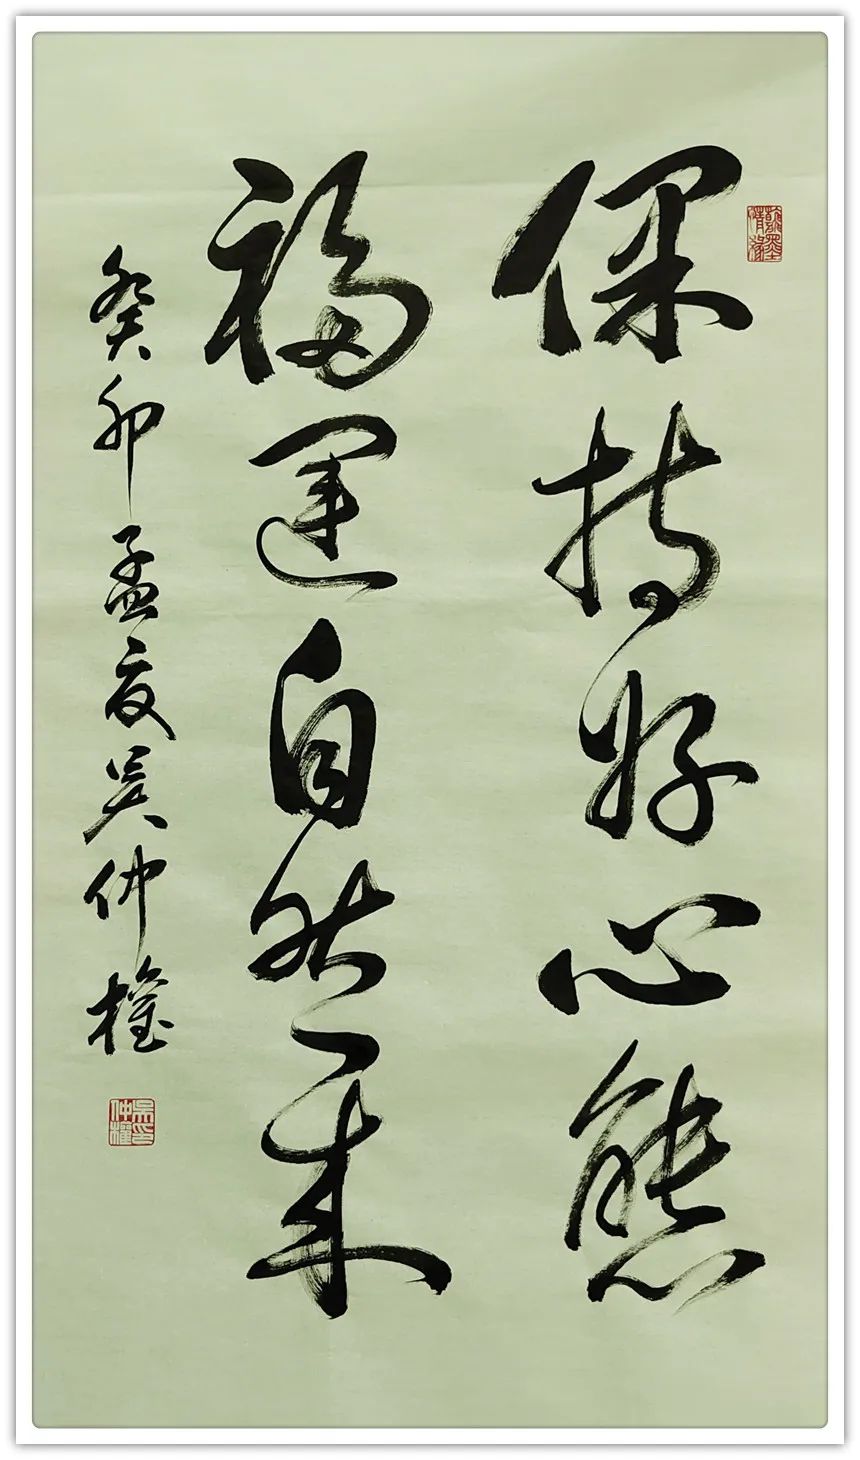 保持好心態
福運自然來
癸卯孟夏吳仲權
吳仲權印